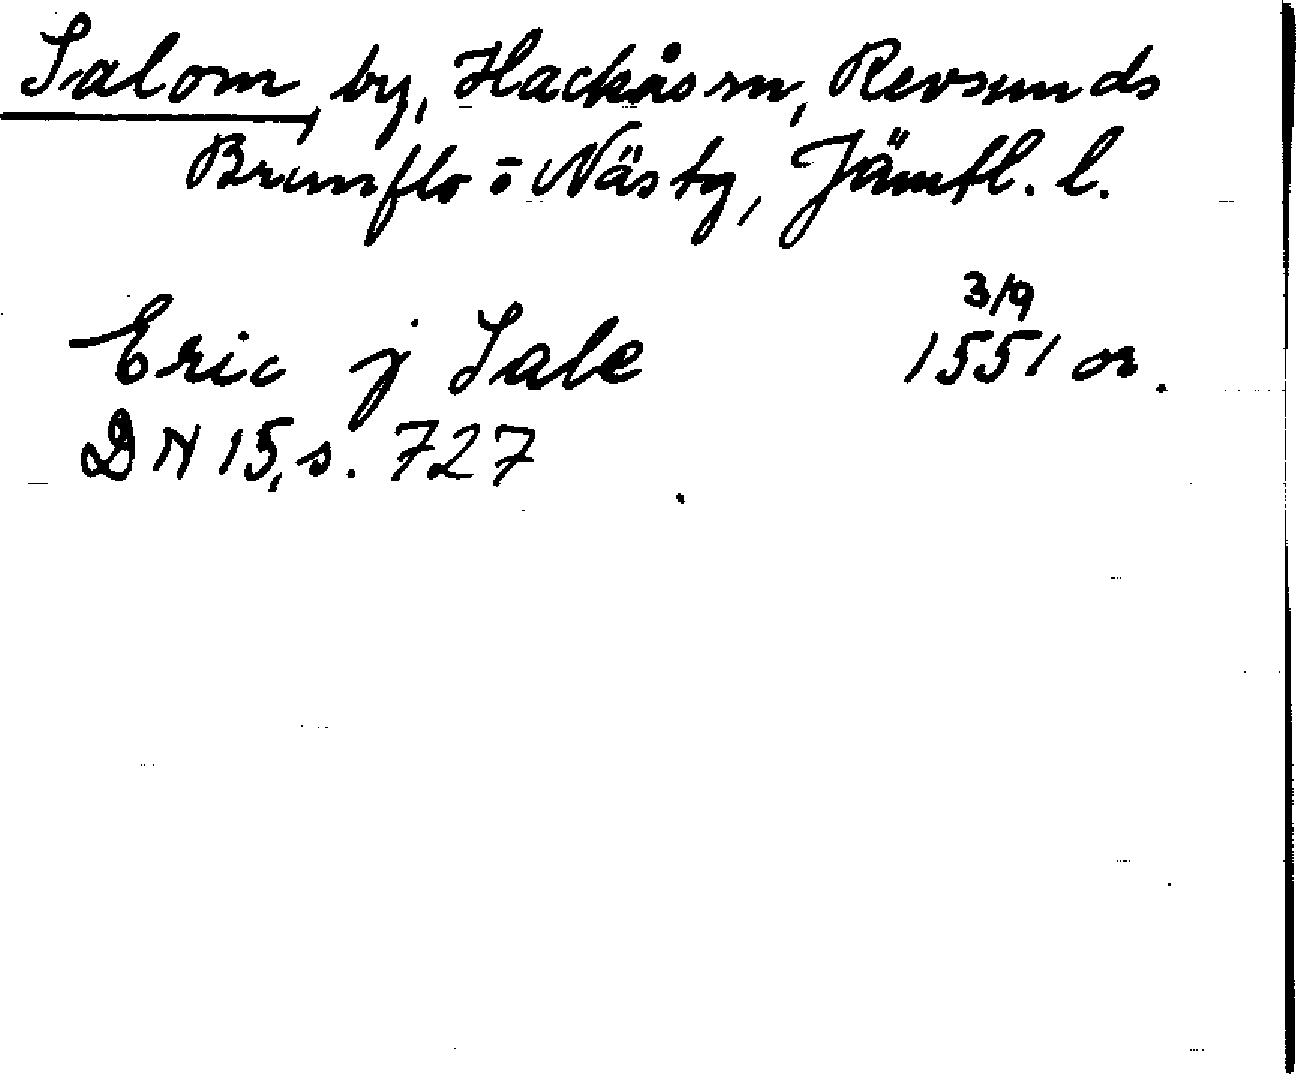 Salom, by, Hackås sn, Revsunds
Brunflo o Näs tg, Jämtl. l.
3/9
Eric j Sale 1551 or.
DN 15, s. 727